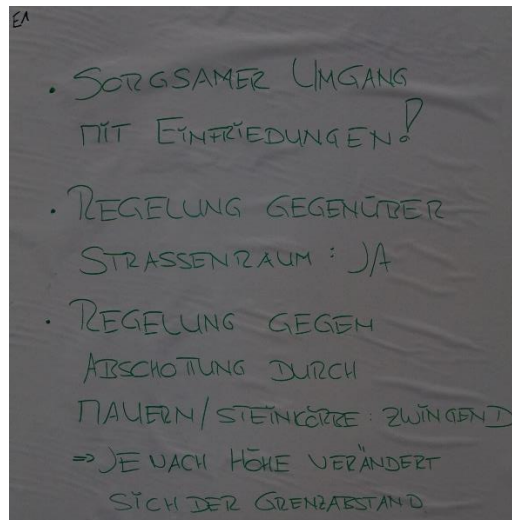 E1
• SORGSAMER UMGANG
MIT EINFRIEDUNGEN!
• REGELUNG GEGENÜBER
STRASSENRAUM: JA
• REGELUNG GEGEN
ABSCHOTTUNG DURCH
MAUERN/STEINKÖRBE: ZWINGEND
⇒ JE NACH HÖHE VERÄNDERT
SICH DER GRENZABSTAND